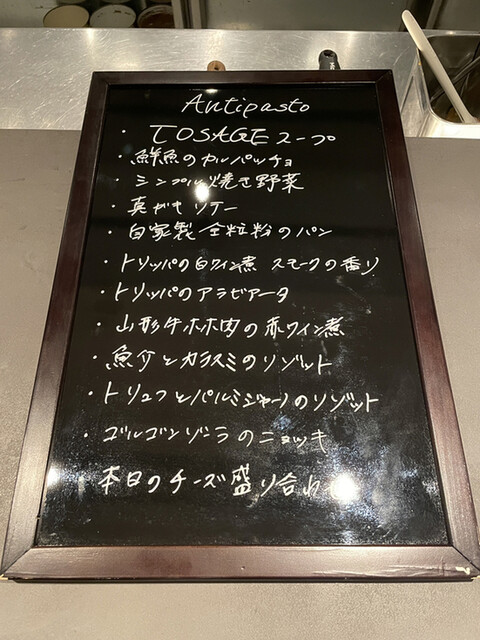 Antipasto
・TOSAGEスープ
・鮮魚のカルパッチョ
・シンプル焼き野菜
・真がキソテー
・自家製全粒粉のパン
・トリッパの白ワイン煮 スモークの香り
・トリッパのアラビアータ
・山形牛ホホ肉の赤ワイン煮
・魚介とカラスミのリゾット
・トリュフとパルミジャーノのリゾット
・ゴルゴンゾーラのニョッキ
本日のチーズ盛り合わ